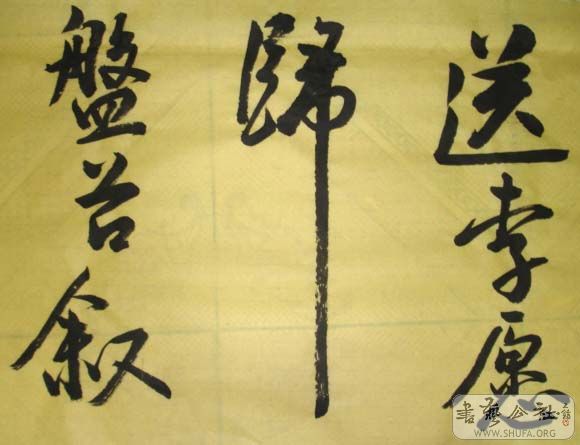 送李愿
歸
盤谷叙
書藝公社
WWW.SHUFA.ORG